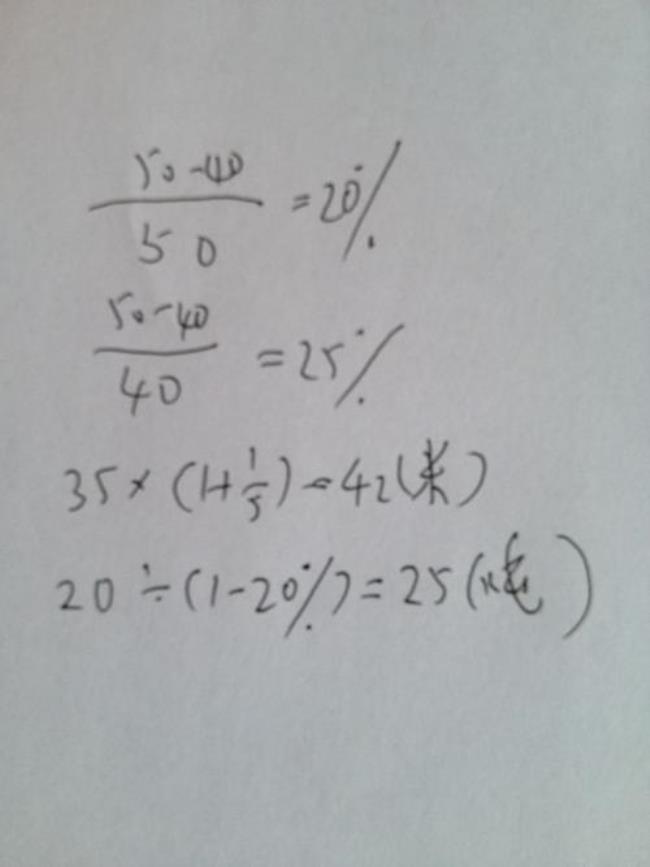 50-40
50
=20%
50-40
40
=25%
35×(1+1/5)=42(米)
20÷(1-20%)=25(吨)